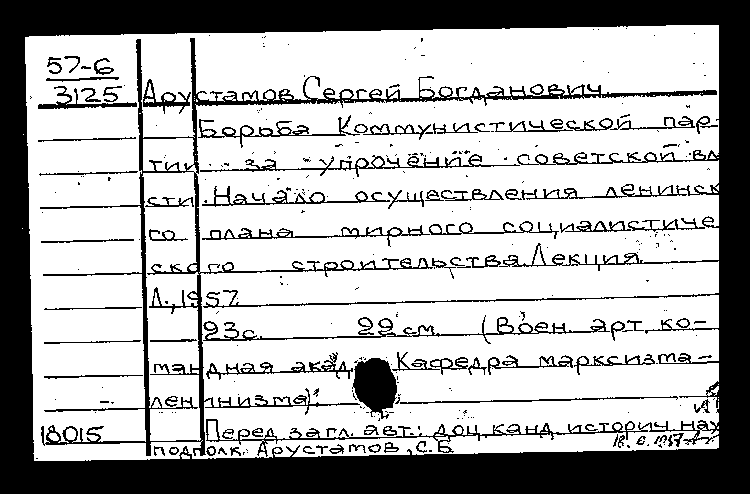 57-6
3125 Арустамов Сергей Богданович.
Борьба Коммунистической пар-
тии за упрочение советской вла
сти. Начало осуществления ленинск
го плана мирного социалистиче
ского строительства. Лекция.
Л., 1957.
23с. 22 см. (Воен. арт. ко-
мандная акад. Кафедра марксизма-
ленинизма).
18015 Перед загл. авт.: доц. канд. историч. нау
подполк. Арустамов, С.Б.